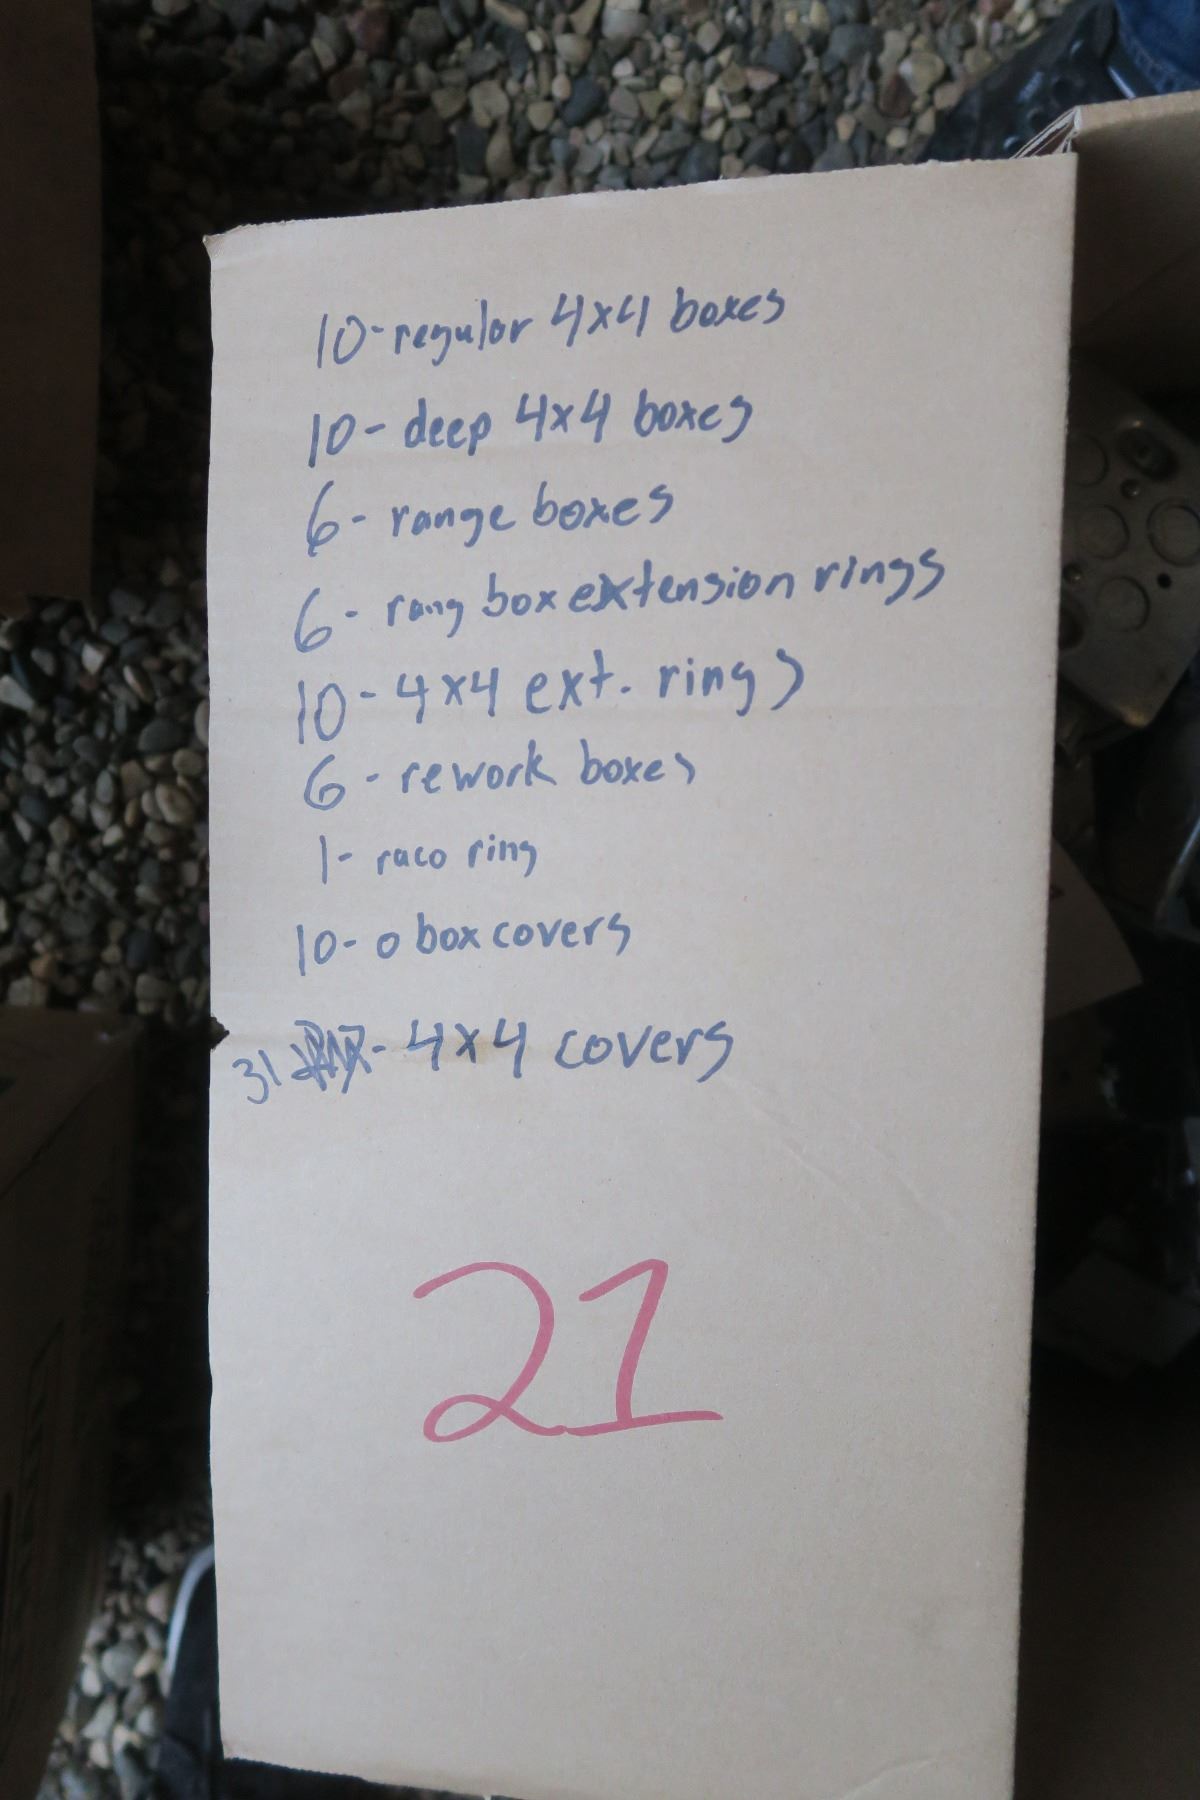 10-regular 4x4 boxes
10- deep 4x4 boxes
6- range boxes
6- rang box extension rings
10-4x4 ext. rings
6-rework boxes
1- raco ring
10- o box covers
31 - 4x4 covers
21